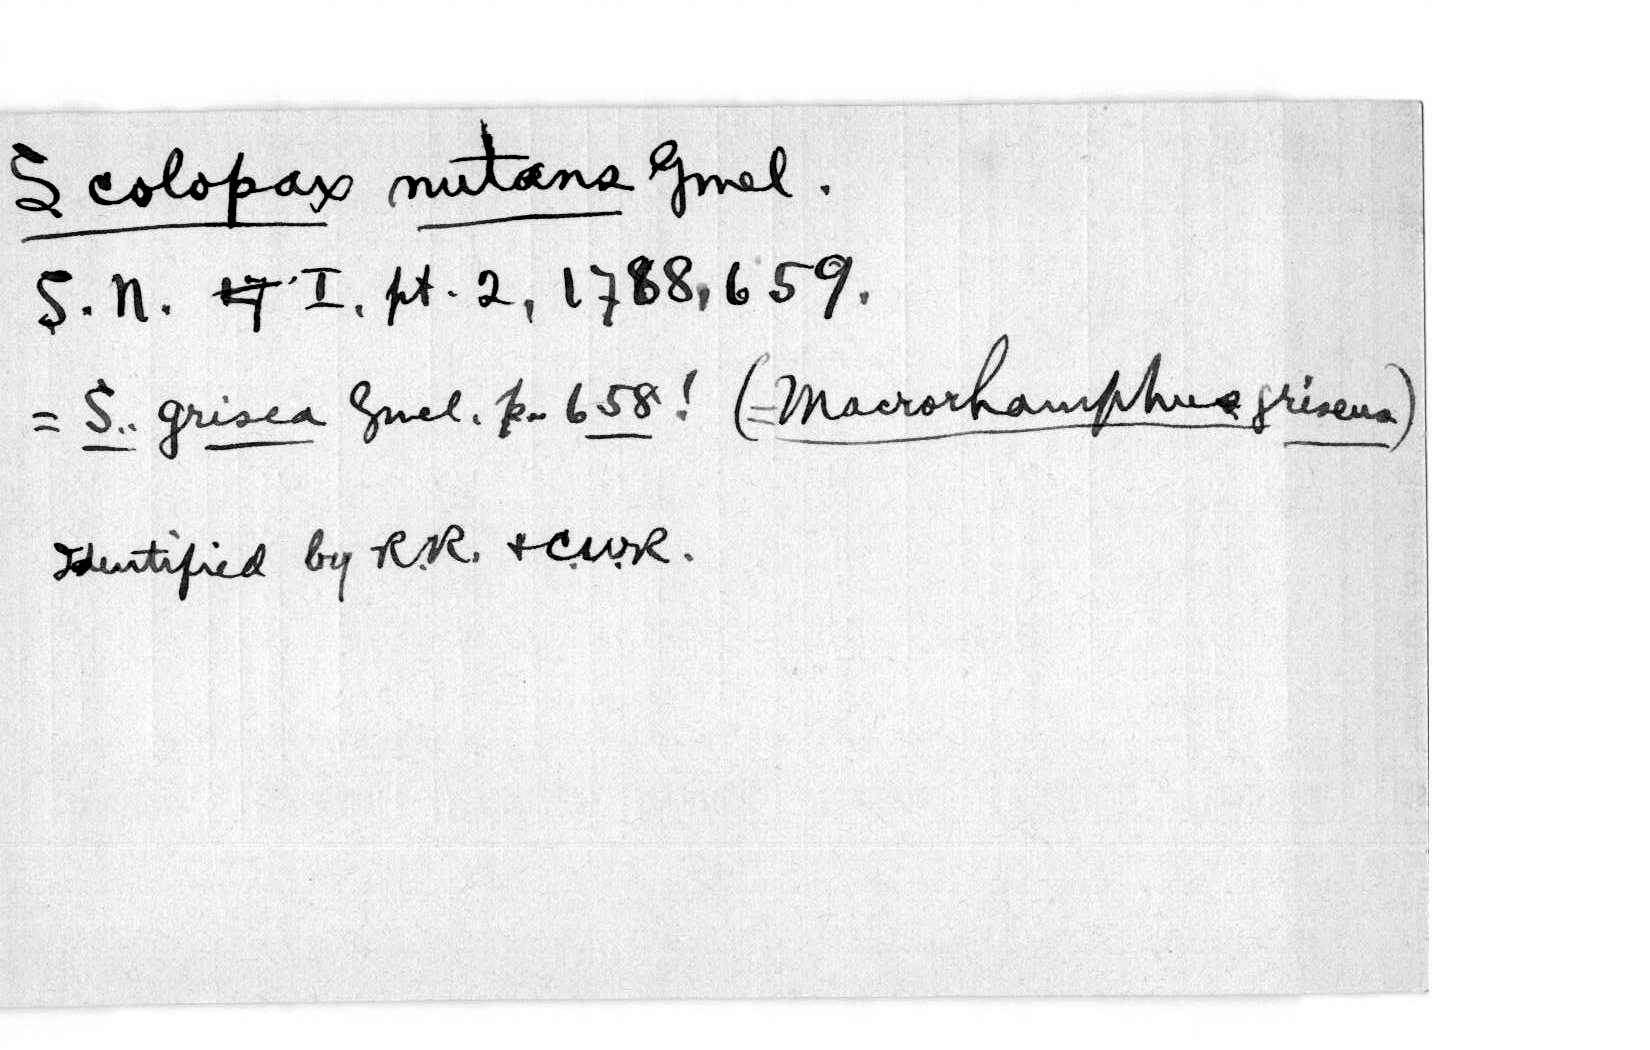 Scolopax nutans Gmel.
S. N. 17 I, pt. 2, 1788, 659.
= S. grisea Gmel. p. 658! (= Macrorhamphus griseus)
Identified by R.R. + C.W.R.